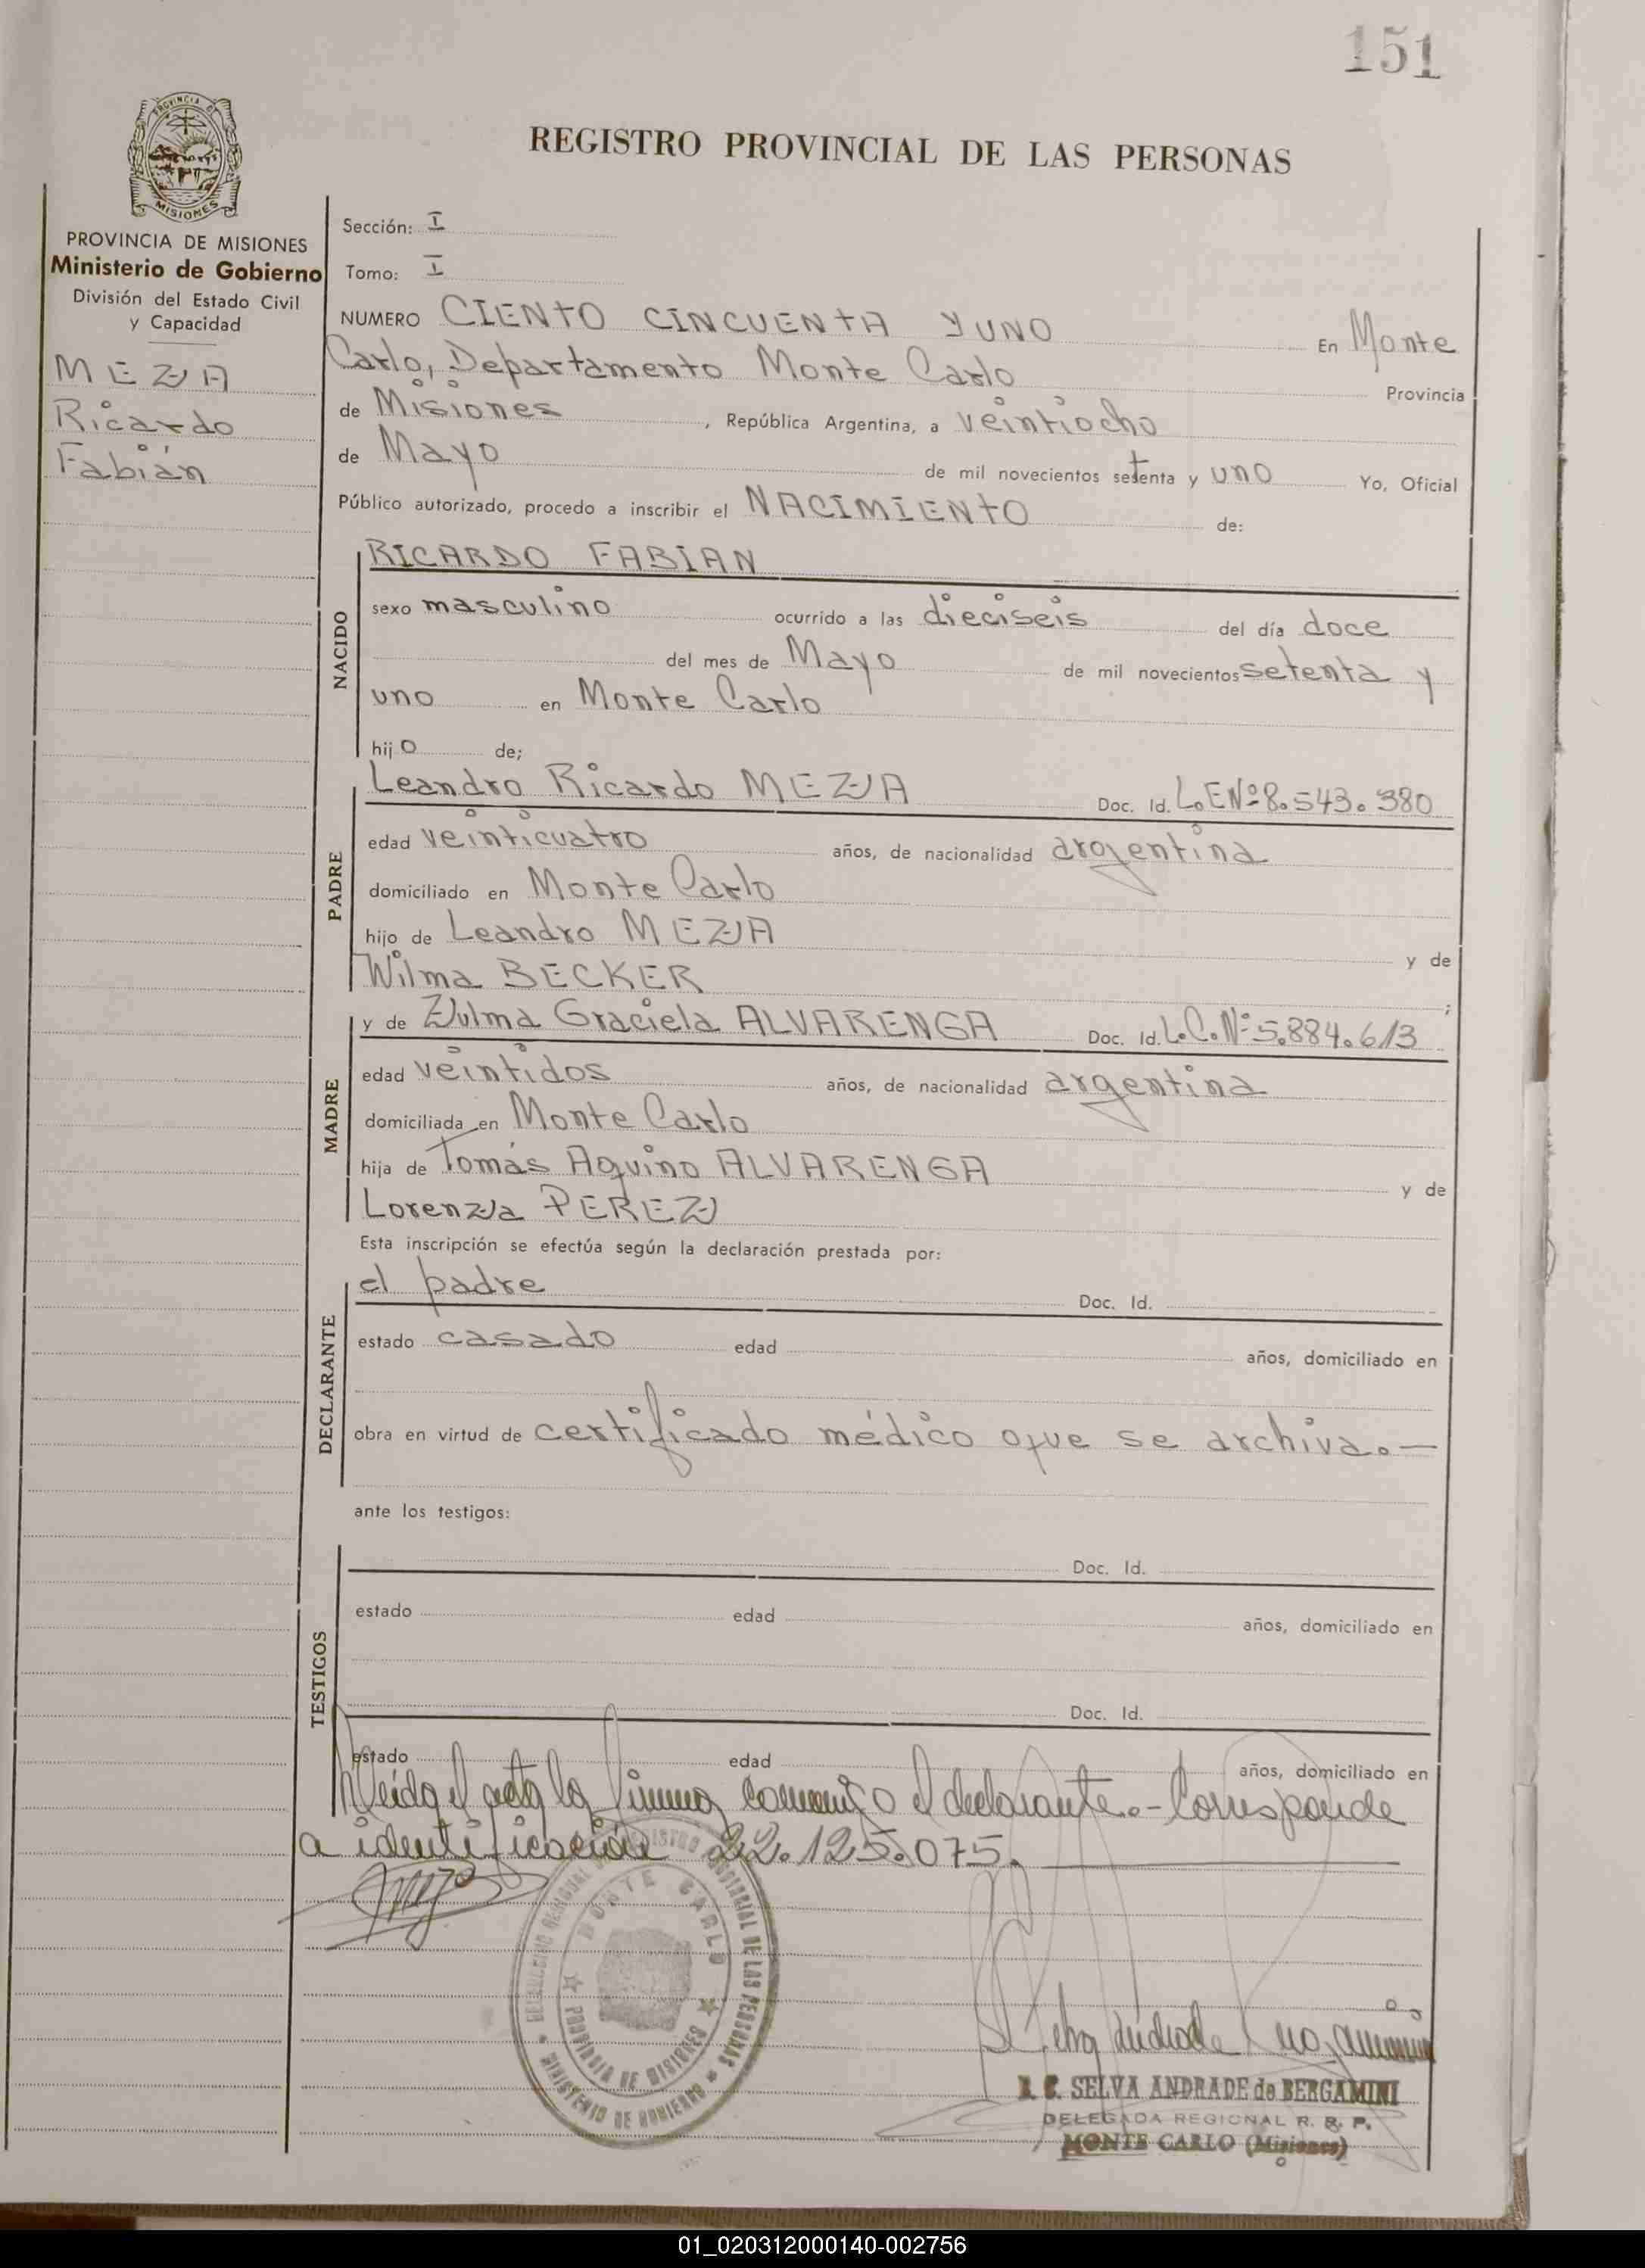 151
REGISTRO PROVINCIAL DE LAS PERSONAS
PROVINCIA DE
MISIONES
PROVINCIA DE MISIONES
Ministerio de Gobierno
División del Estado Civil
y Capacidad
MEZA
Ricardo
Fabián
Sección: I
Tomo: I
NUMERO CIENTO CINCUENTA Y UNO En Monte
Carlo, Departamento Monte Carlo Provincia
de Misiones, República Argentina, a veintiocho
de Mayo de mil novecientos setenta y uno Yo, Oficial
Público autorizado, procedo a inscribir el NACIMIENTO de:
NACIDO
RICARDO FABIAN
sexo masculino ocurrido a las dieciseis del día doce
del mes de Mayo de mil novecientos setenta y
uno en Monte Carlo
hijo de;
PADRE
Leandro Ricardo MEZA Doc. Id. L.E Nº 8.543.380
edad veinticuatro años, de nacionalidad argentina
domiciliado en Monte Carlo
hijo de Leandro MEZA y de
Wilma BECKER ;
MADRE
y de Zulma Graciela ALVARENGA Doc. Id. L.C. Nº 5.884.613
edad veintidos años, de nacionalidad argentina
domiciliada en Monte Carlo
hija de Tomás Aquino ALVARENGA y de
Lorenza PEREZ
Esta inscripción se efectúa según la declaración prestada por:
DECLARANTE
el padre Doc. Id.
estado casado edad años, domiciliado en
obra en virtud de certificado médico que se archiva.—
ante los testigos:
TESTIGOS
Doc. Id.
estado edad años, domiciliado en
Doc. Id.
estado edad años, domiciliado en
Leída el acta la firma conmigo el declarante.- Corresponde
a identificación 22.125.075.
REGISTRO PROVINCIAL DE LAS PERSONAS
MONTE CARLO
PROVINCIA DE MISIONES
MINISTERIO DE GOBIERNO
SELVA ANDRADE de BERGAMINI
DELEGADA REGIONAL R. P. P.
MONTE CARLO (Misiones)
01_020312000140-002756